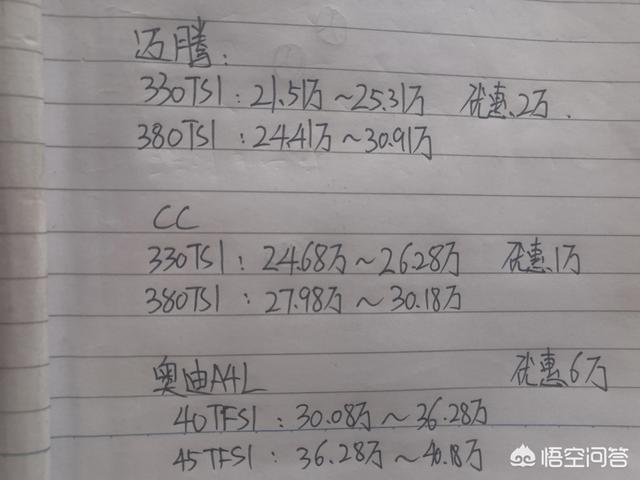 迈腾：
330TSI：21.51万～25.31万 优惠2万.
380TSI：24.41万～30.91万
CC
330TSI：24.68万～26.28万 优惠1万
380TSI：27.98万～30.18万
奥迪A4L 优惠6万
40TFSI：30.08万～36.28万
45TFSI：36.28万～40.18万
悟空问答